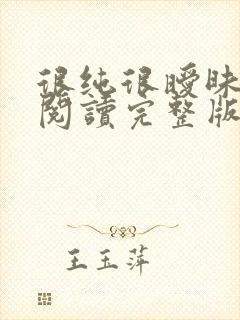 很纯很曖昧
閱讀完整版
王玉萍